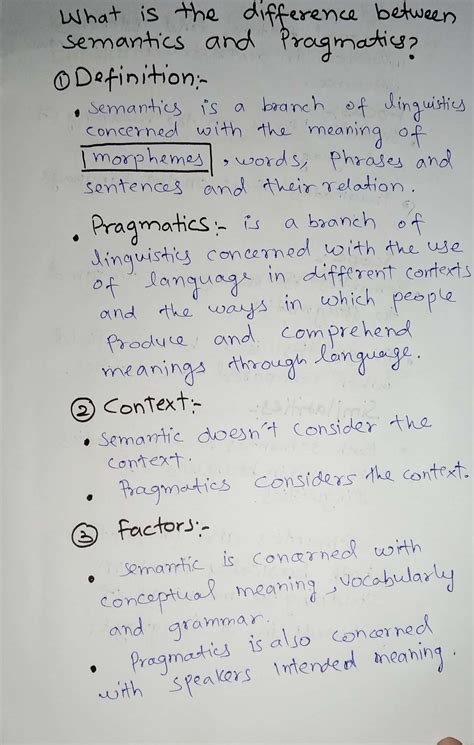 What is the difference between
semantics and Pragmatics?
① Definition:-
• Semantics is a branch of linguistics
concerned with the meaning of
morphemes, words, Phrases and
sentences and their relation.
• Pragmatics:- is a branch of
linguistics concerned with the use
of language in different contexts
and the ways in which people
Produce and comprehend
meanings through language.
② Context:-
• Semantic doesn't consider the
context.
• Pragmatics considers the context.
③ factors:-
• Semantic is concerned with
conceptual meaning, vocabularly
and grammar.
• Pragmatics is also concerned
with speakers Intended meaning.